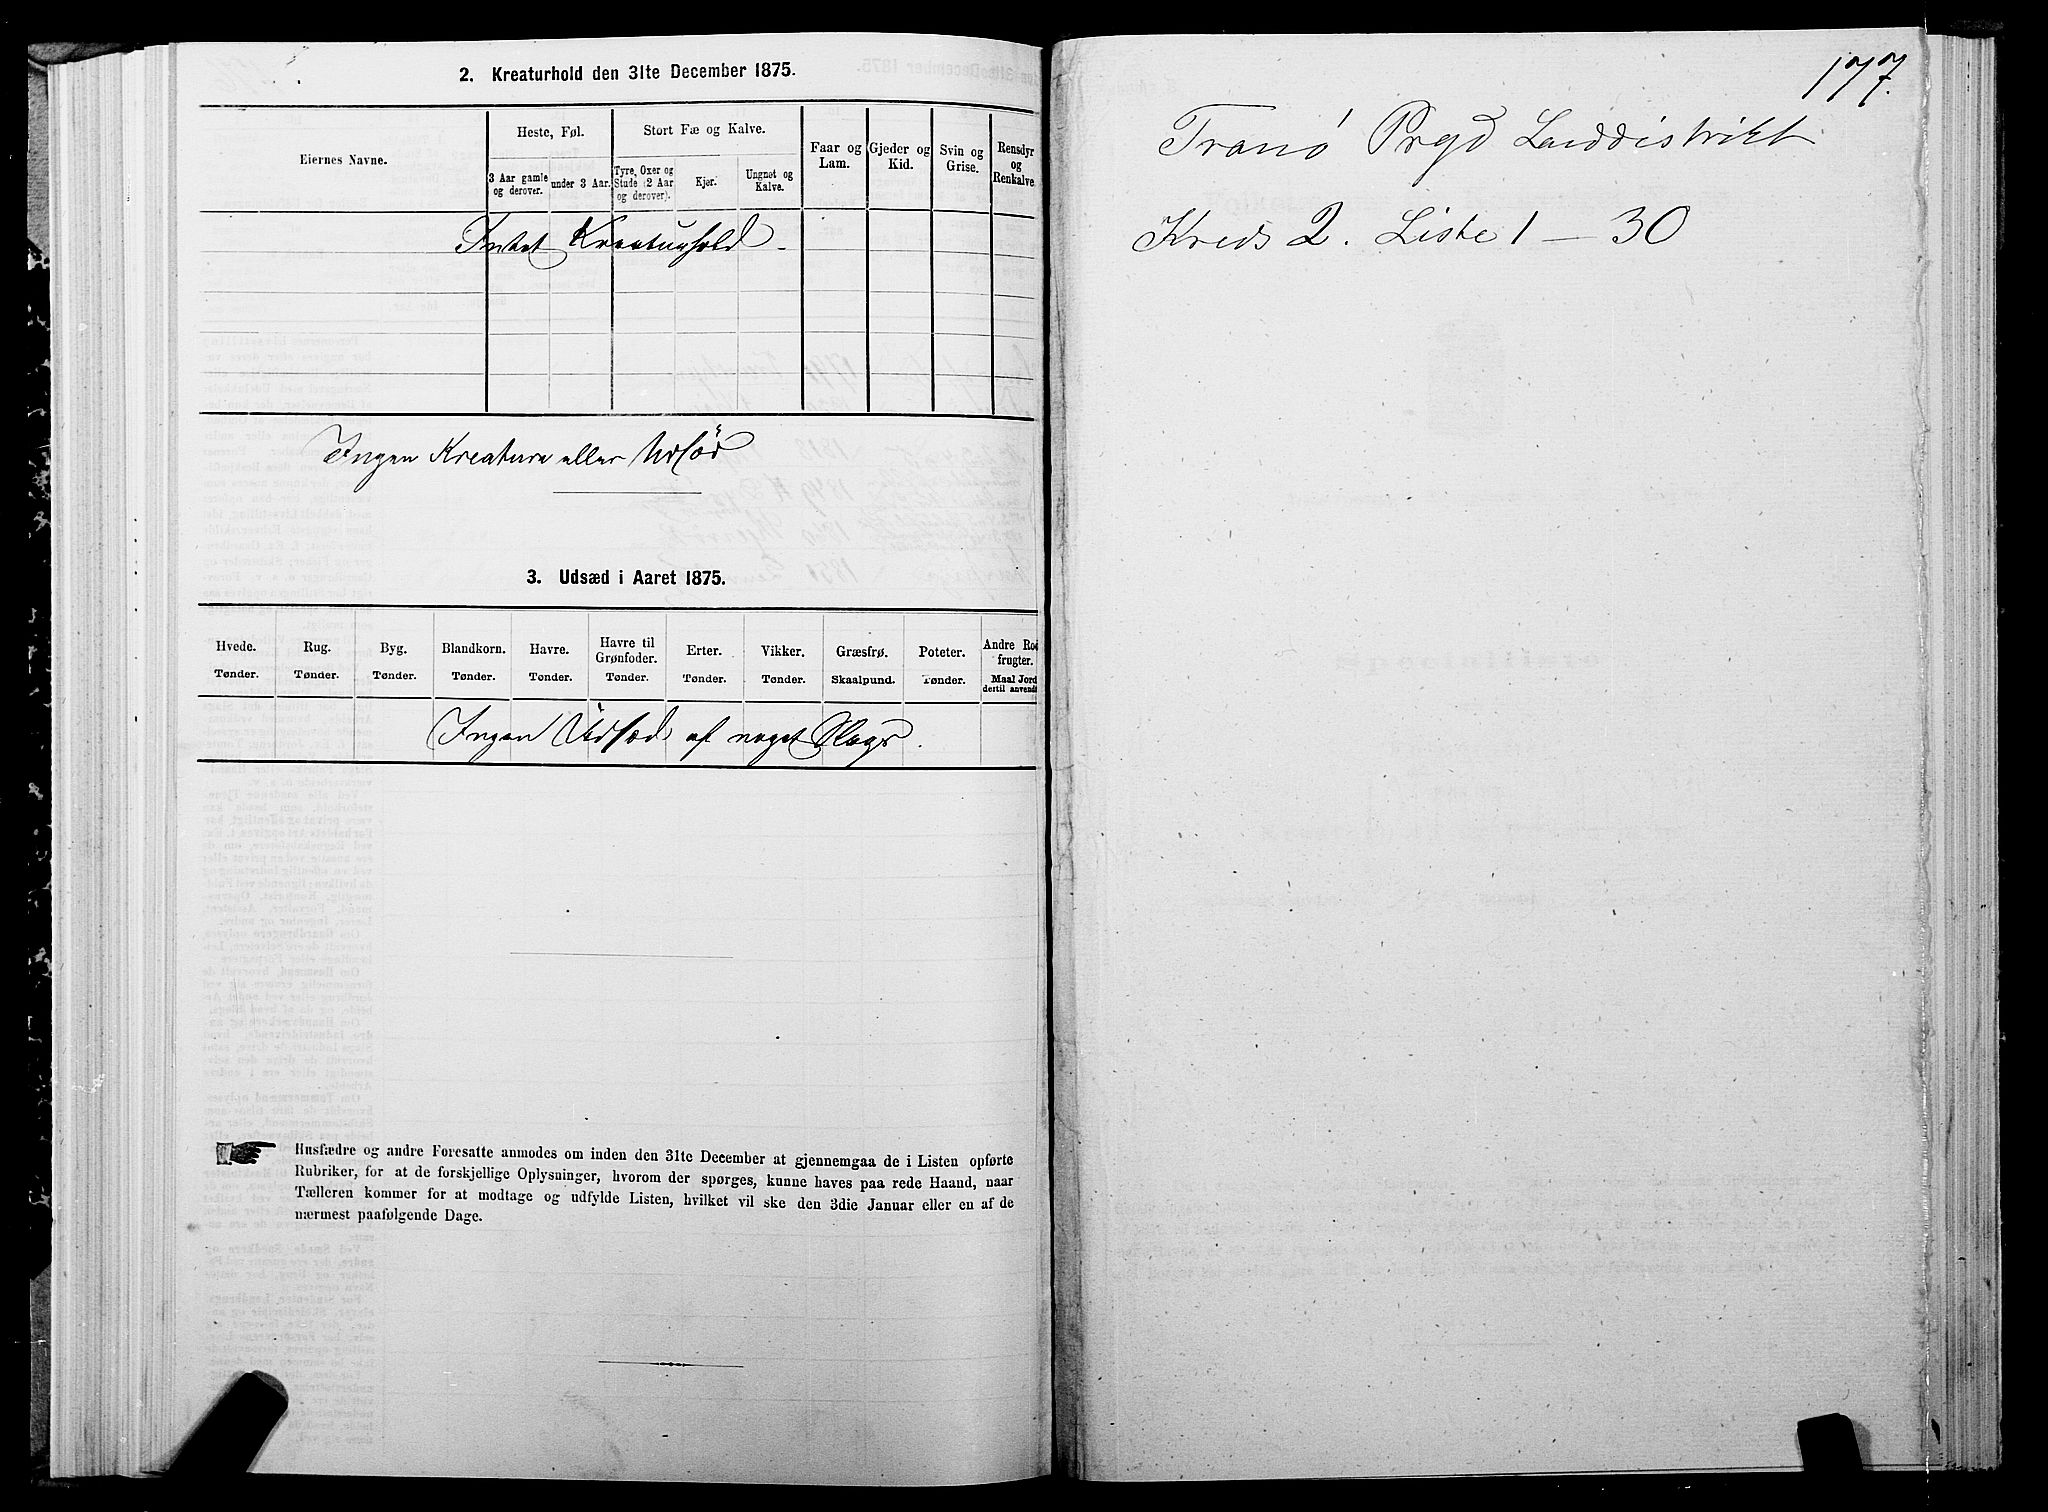 2. Kreaturhold den 31te December 1875.
Eiernes Navne.
Heste, Føl.
Stort Fæ og Kalve.
Faar og Lam.
Gjeder og Kid.
Svin og Grise.
Rensdyr og Renkalve.
3 Aar gamle og derover.
under 3 Aar.
Tyre, Oxer og Stude (2 Aar og derover).
Kjør.
Ungnøt og Kalve.
Intet Kreaturhold
Ingen Kreature eller Udsæd
3. Udsæd i Aaret 1875.
Hvede. Tønder.
Rug. Tønder.
Byg. Tønder.
Blandkorn. Tønder.
Havre. Tønder.
Havre til Grønfoder. Tønder.
Erter. Tønder.
Vikker. Tønder.
Græsfrø. Skaalpund.
Poteter. Tønder.
Andre Rod frugter. Maal Jord dertil anvendt
Ingen Udsæd af noget Slags.
Husfædre og andre Foresatte anmodes om inden den 31te December at gjennemgaa de i Listen opførte
Rubriker, for at de forskjellige Oplysninger, hvorom der spørges, kunne haves paa rede Haand, naar
Tælleren kommer for at modtage og udfylde Listen, hvilket vil ske den 3die Januar eller en af de
nærmest paafølgende Dage.
177.
Tranö Prgd Landdistrikt
Kreds 2. Liste 1 – 30